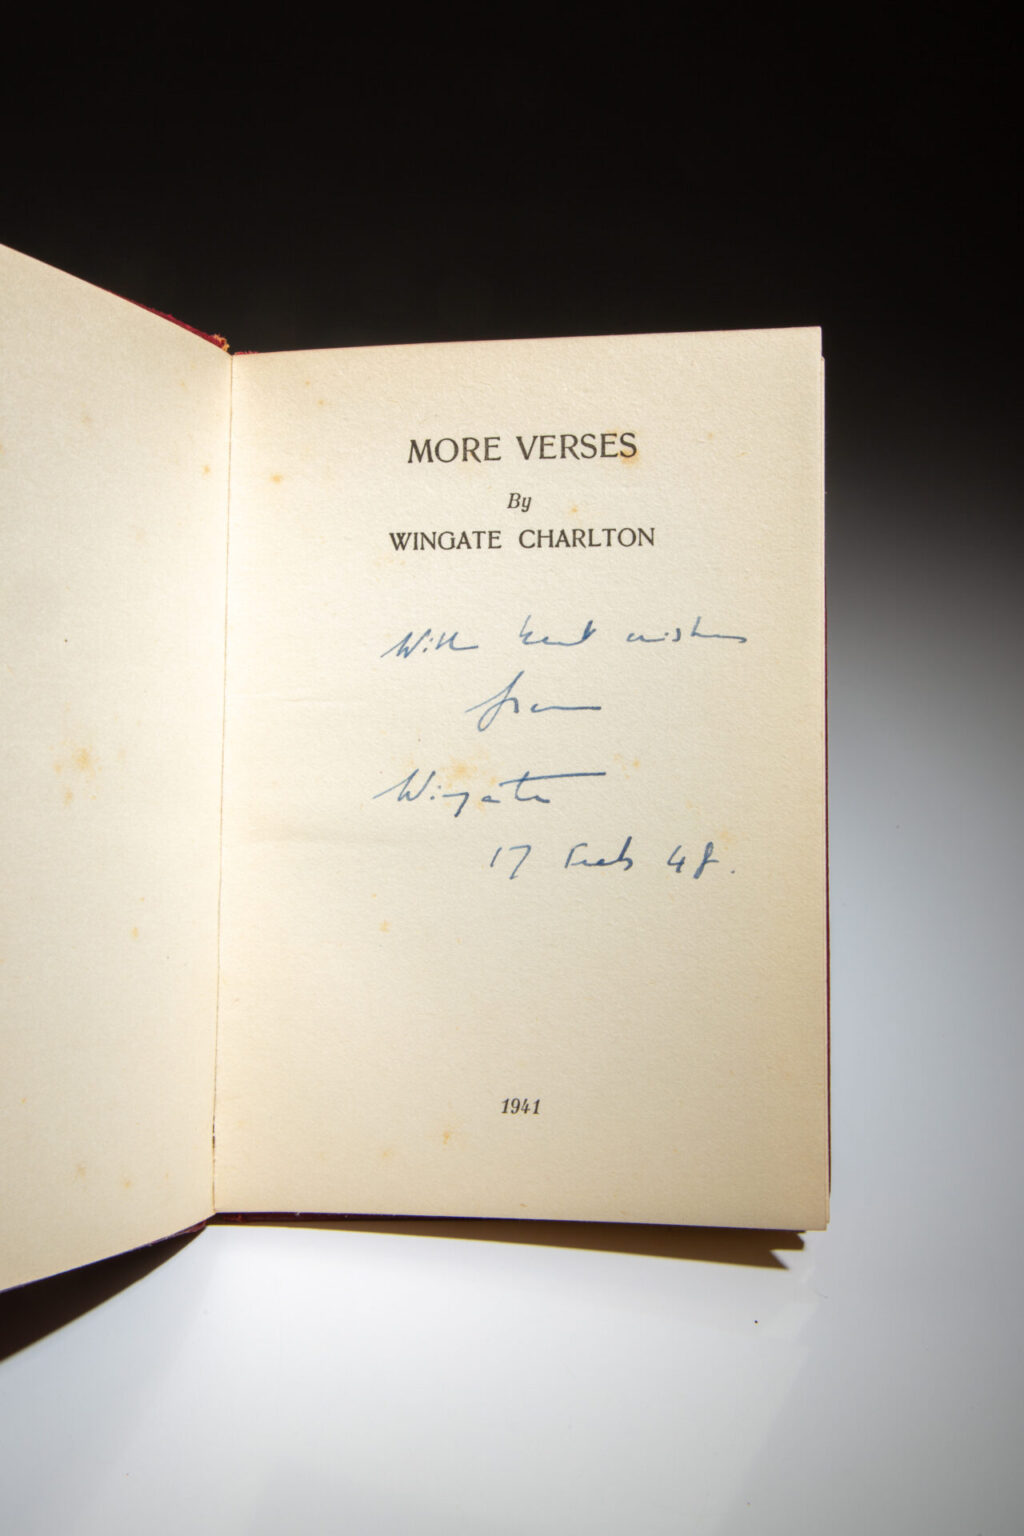 MORE VERSES
By
WINGATE CHARLTON
With best wishes
from
Wingate
17 Feb 48.
1941